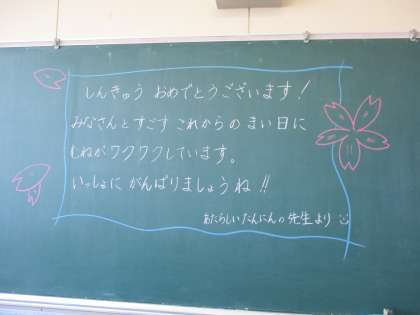 しんきゅう おめでとうございます！
みなさんとすごす これからの まい日に
むねがワクワクしています。
いっしょに がんばりましょうね!!
あたらしいたんにんの先生より